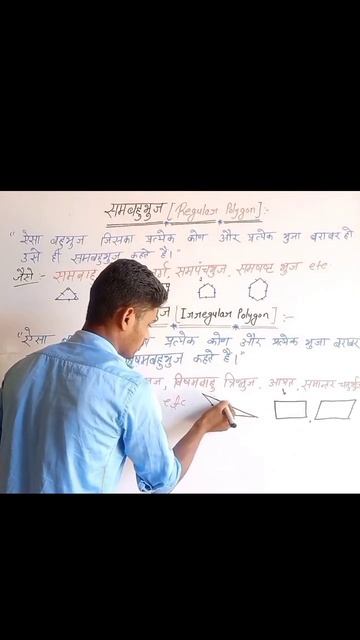 समबहुभुज [Regular Polygon] :-
"ऐसा बहुभुज जिसका प्रत्येक कोण और प्रत्येक भुजा बराबर हो
उसे ही समबहुभुज कहते है।"
जैसे:- समबाहु वर्ग, समपंचभुज, समषष्ट भुज etc
[Irregular Polygon] :-
"ऐसा प्रत्येक कोण और प्रत्येक भुजा बराबर
विषमबहुभुज कहते है।"
विषमबाहु त्रिभुज, आयत, समान्तर चतुर्भुज
etc